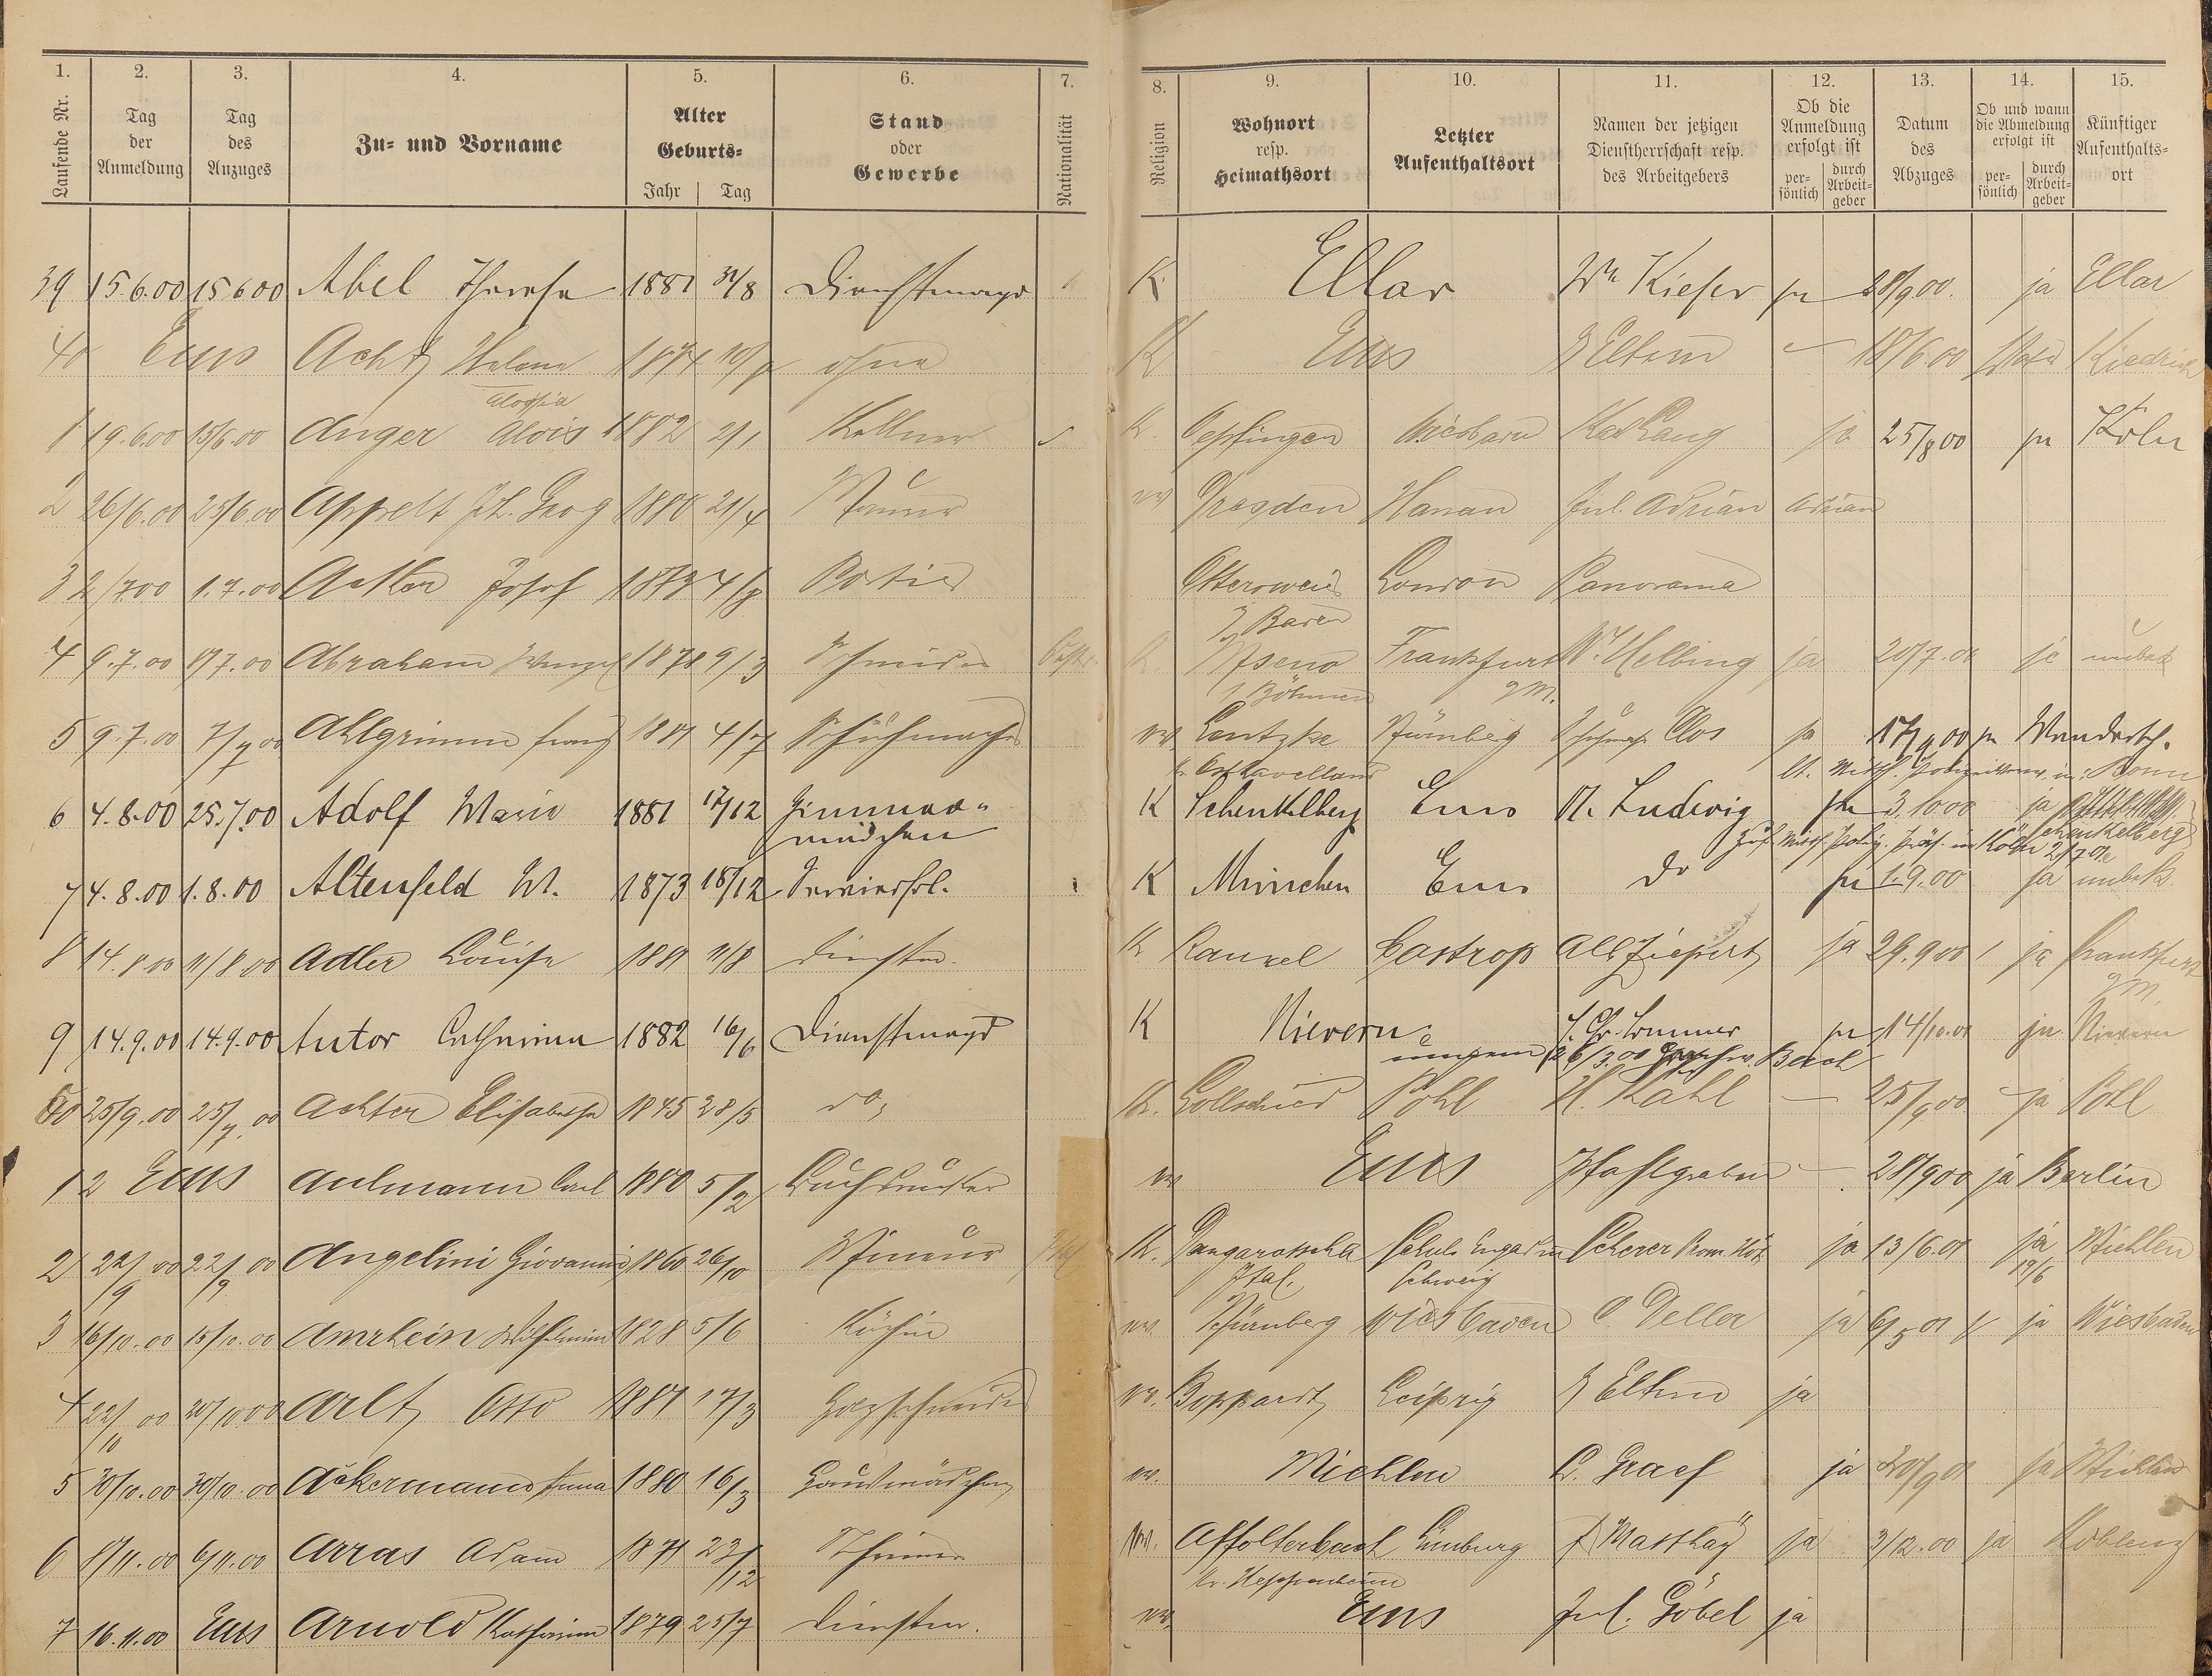 1. 2. 3. 4. 5. 6. 7. 8. 9. 10. 11. 12. 13. 14. 15.
Laufende Nr.
Tag der Anmeldung
Tag des Anzuges
Zu- und Vorname
Alter Geburts-
Jahr Tag
Stand oder Gewerbe
Nationalität
Religion
Wohnort resp. Heimathsort
Letzter Aufenthaltsort
Namen der jetzigen Dienstherrschaft resp. des Arbeitgebers
Ob die Anmeldung erfolgt ist
persönlich durch Arbeitgeber
Datum des Abzuges
Ob und wann die Abmeldung erfolgt ist
persönlich durch Arbeitgeber
Künftiger Aufenthaltsort
39 15.6.00 15 6 00 Abel Therese 1881 31/8 Dienstmagd K Ellar Wn Kiefer ja 28/9 00. ja Ellar
40 Ems Acht Helene 1874 ohne K Ems Eltern 18/6.00 Kiedrich
Aloysia
1 19.6.00 15/6.00 Anger Alois 1882 2/1 Kellner K. Wiesbaden Kath. Lang ja 25/8 00 ja Köln
2 26/6.00 25/6.00 Appelt Joh. Georg 1880 21/4 Dresden Hanau Jul. Adrian Adrian
3 2/7 00 1.7.00 Josef 1873 Portier London Panorama
Baden
4 9.7.00 8/7.00 Abraham Wenzel 1878 9/3 Schneider K. Frankfurt W. Helbing ja 20/7.00 ja unbek
Böhmen a/M.
5 9.7.00 7/7 00 Ahlgrimm Franz 1881 4/7 Schuhmacher Lentzke Nürnberg Clos ja 17/9 00 ja Wandersch.
Kr. Osthavelland
6 4.8.00 25.7.00 Adolf Marie 1881 17/12 Zimmer-mädchen K Schenkelberg Ems M. Ludwig ja 3.10.00 ja Schenkelberg
7 4.8.00 1.8.00 Altenfeld W. 1873 18/12 K München Ems do ja 1.9.00 ja unbek.
8 14.8.00 11/8.00 Adler Louise 1881 11/8 Dienstm. K Rauxel Castrop ja 29.9 00 ja Frankfurt a/M.
9 14.9.00 14.9.00 Autor Catharina 1882 16/6 Dienstmagd K Nievern ja 14/10.00 ja Nievern
Bach
50 25/9.00 25/7.00 Achter Elisabeth 1845 28/5 do K. Pohl H. Kahl 25/9 00 ja Pohl
1 2 Ems Aulmann Carl 1880 5/2 Buchdrucker Ems Pfahlgraben 28/9 00 ja Berlin
2 22/9 00 22/9 00 Angelini Giovanni 1860 26/10 Mineur K. Schuls Engadin Scherer ja 13/6.01 ja 19/6 Miehlen
Ital. Schweiz
3 16/10.00 15/10.00 Amrhein Wilhelmine 1828 5/6 Köchin Nürnberg Wiesbaden C. Deller ja 6/5 01 ja Wiesbaden
4 22/10 00 20/10 00 Arlt Otto 1881 17/3 Holzschneider Boppard Leipzig Eltern ja
5 30/10.00 30/10.00 Ackermann Anna 1880 16/3 Hausmädchen Miehlen C. Graef ja 20/9 01 ja Miehlen
6 8/11.00 6/11.00 Arras Adam 1871 23/12 Schreiner Affolterbach Limburg J Matthäy ja 3/12.00 ja Koblenz
Kr. Heppenheim
7 16.11.00 Ems Arnold Katharina 1879 25/7 Dienstm. Ems Jul. Göbel ja